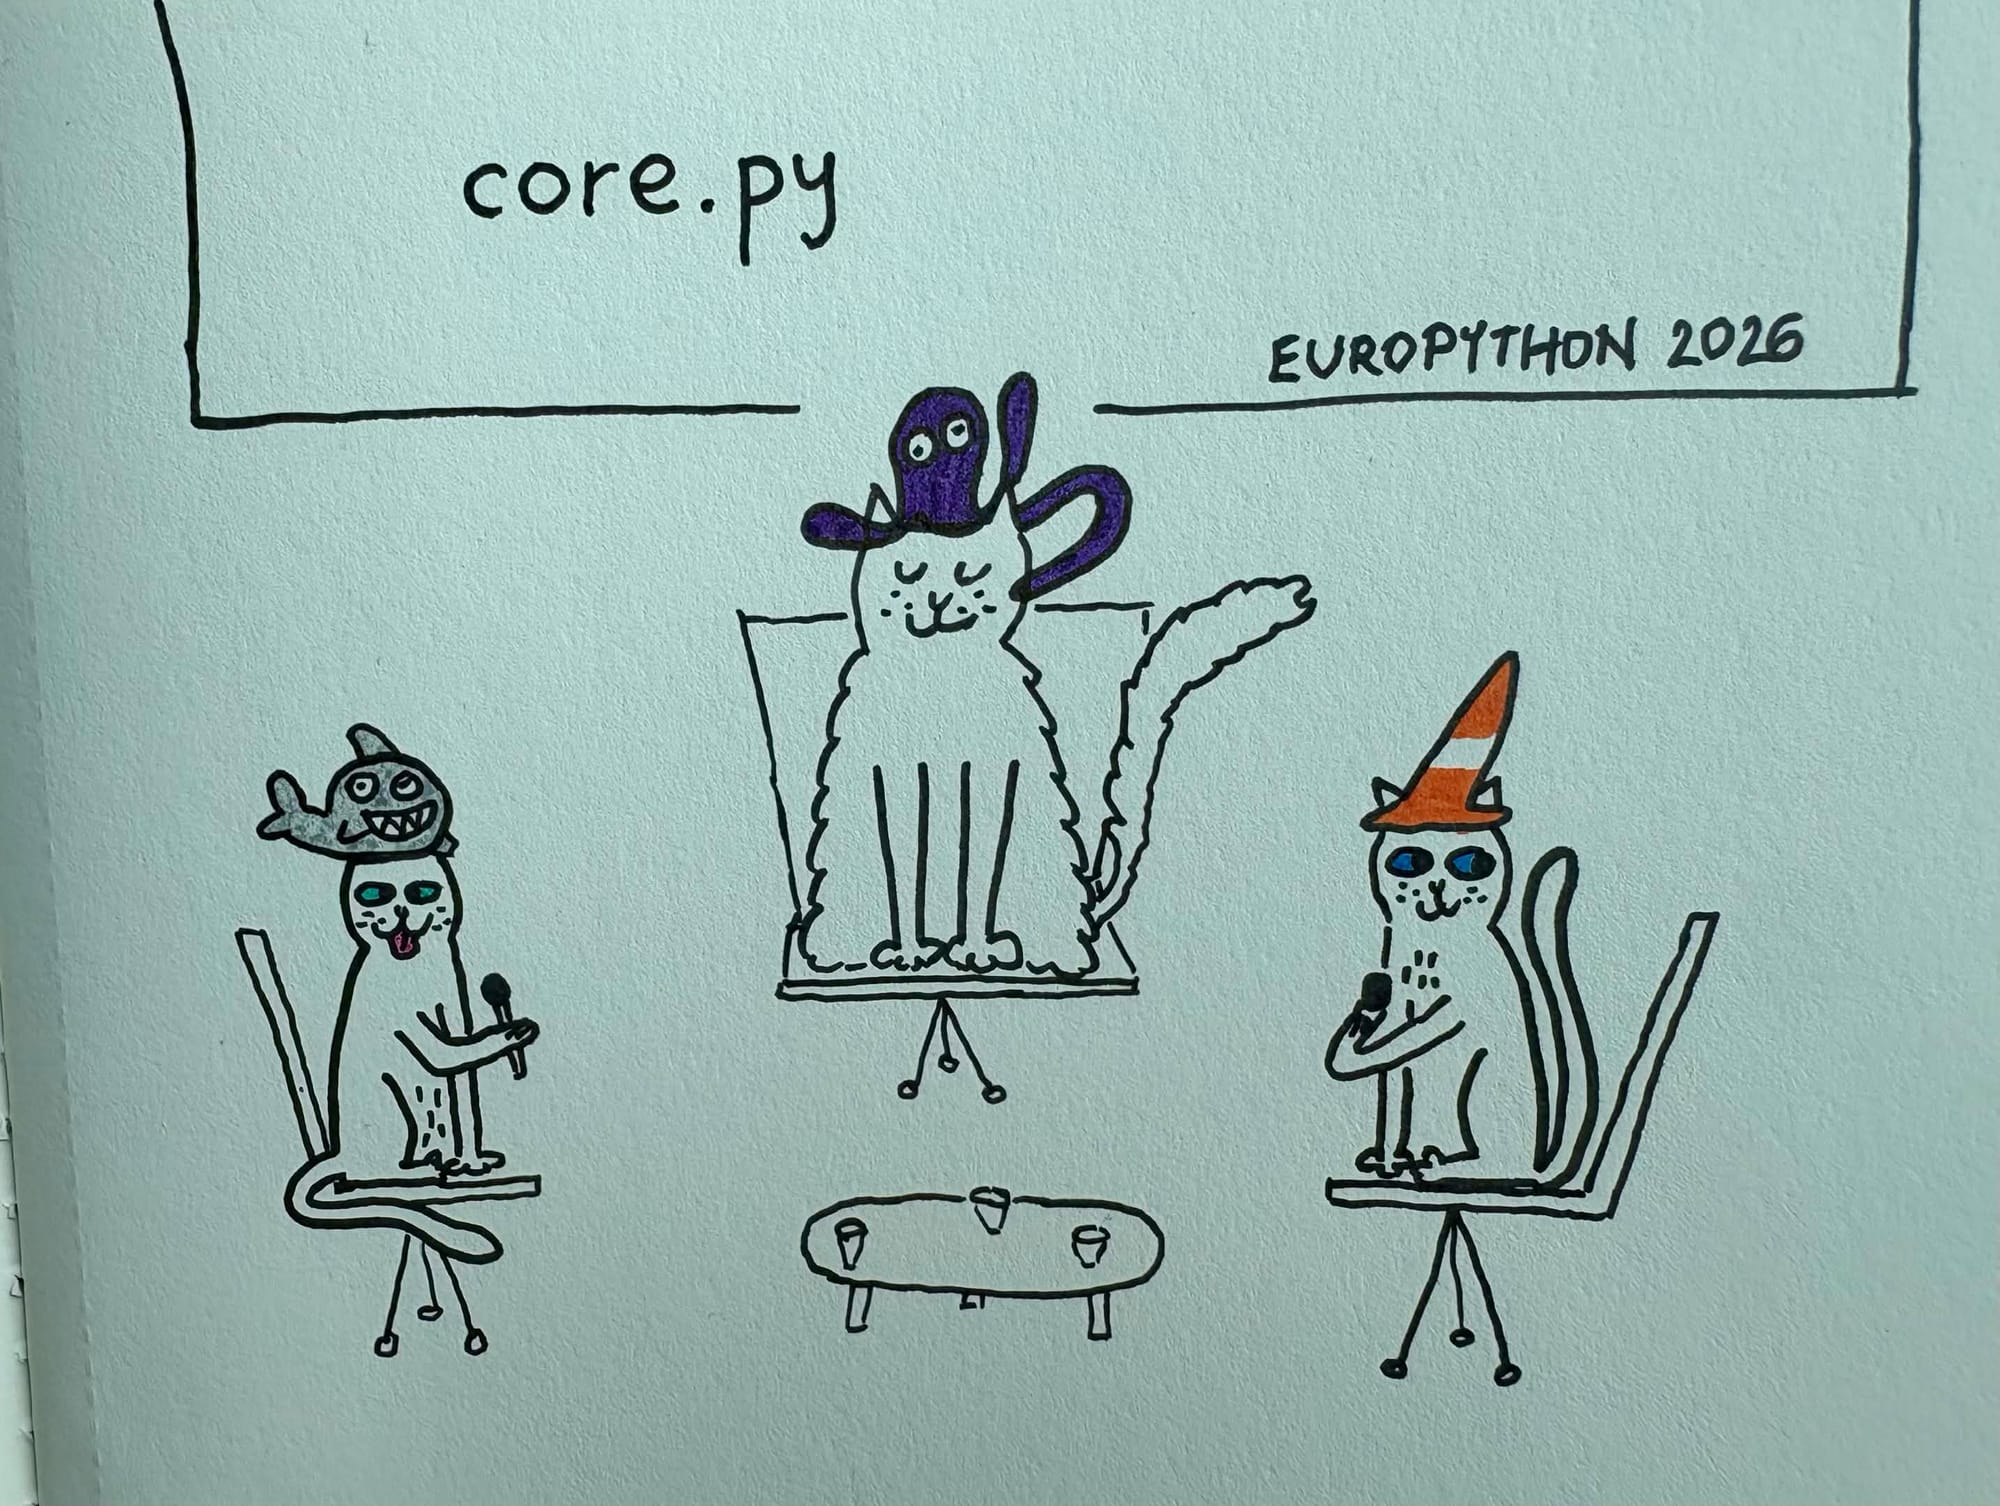 core.py
EUROPYTHON 2026